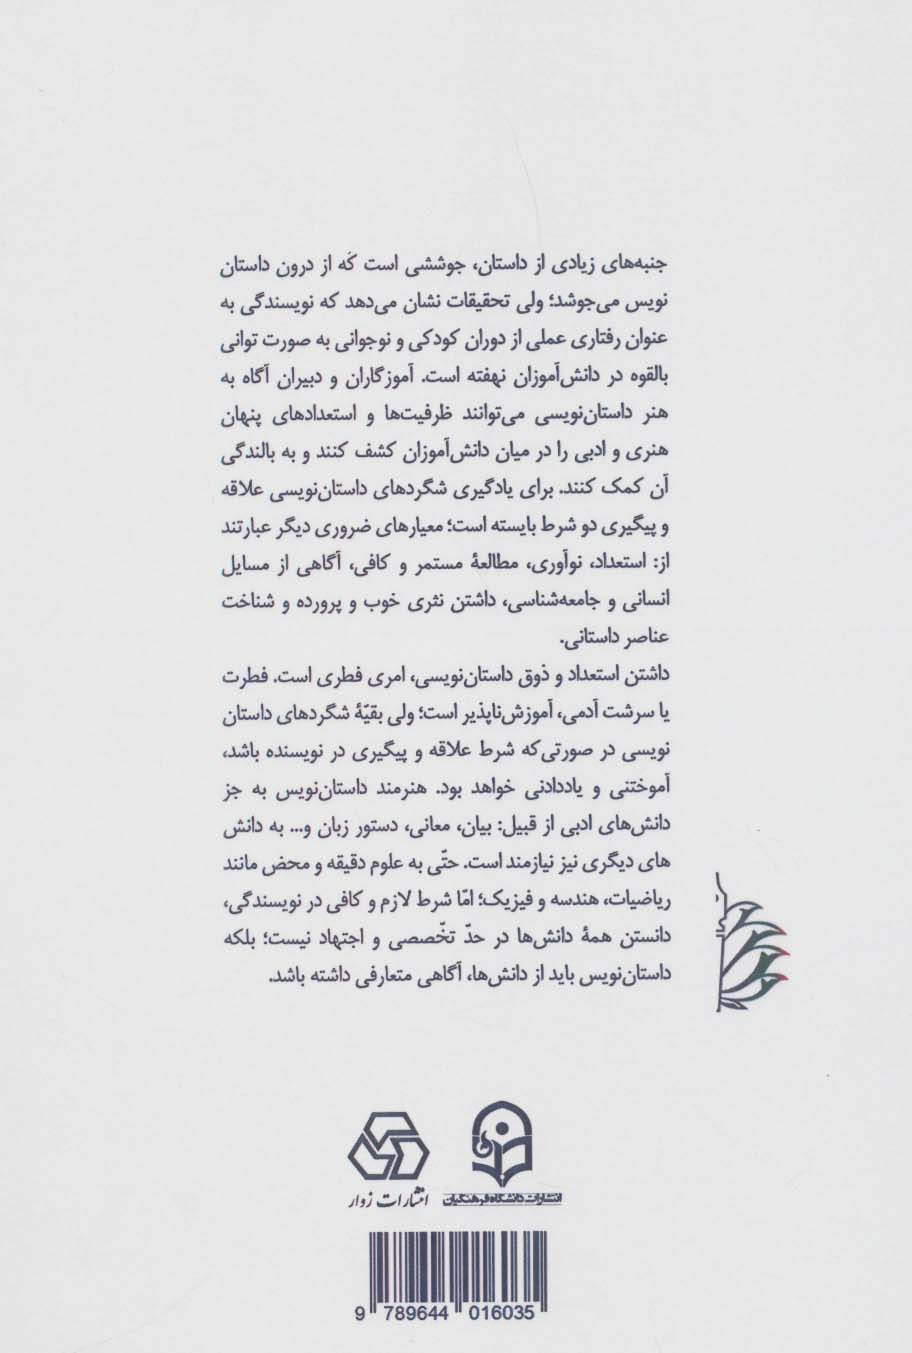 جنبه‌های زیادی از داستان، جوششی است که از درون داستان
نویس می‌جوشد؛ ولی تحقیقات نشان می‌دهد که نویسندگی به
عنوان رفتاری عملی از دوران کودکی و نوجوانی به صورت توانی
بالقوه در دانش‌آموزان نهفته است. آموزگاران و دبیران آگاه به
هنر داستان‌نویسی می‌توانند ظرفیت‌ها و استعدادهای پنهان
هنری و ادبی را در میان دانش‌آموزان کشف کنند و به بالندگی
آن کمک کنند. برای یادگیری شگردهای داستان‌نویسی علاقه
و پیگیری دو شرط بایسته است؛ معیارهای ضروری دیگر عبارتند
از: استعداد، نوآوری، مطالعۀ مستمر و کافی، آگاهی از مسایل
انسانی و جامعه‌شناسی، داشتن نثری خوب و پرورده و شناخت
عناصر داستانی.
داشتن استعداد و ذوق داستان‌نویسی، امری فطری است. فطرت
یا سرشت آدمی، آموزش‌ناپذیر است؛ ولی بقیّۀ شگردهای داستان
نویسی در صورتی‌که شرط علاقه و پیگیری در نویسنده باشد،
آموختنی و یاددادنی خواهد بود. هنرمند داستان‌نویس به جز
دانش‌های ادبی از قبیل: بیان، معانی، دستور زبان و... به دانش
های دیگری نیز نیازمند است. حتّی به علوم دقیقه و محض مانند
ریاضیات، هندسه و فیزیک؛ امّا شرط لازم و کافی در نویسندگی،
دانستن همۀ دانش‌ها در حدّ تخّصصی و اجتهاد نیست؛ بلکه
داستان‌نویس باید از دانش‌ها، آگاهی متعارفی داشته باشد.
انتشارات دانشگاه فرهنگیان
انتشارات زوار
9 789644 016035